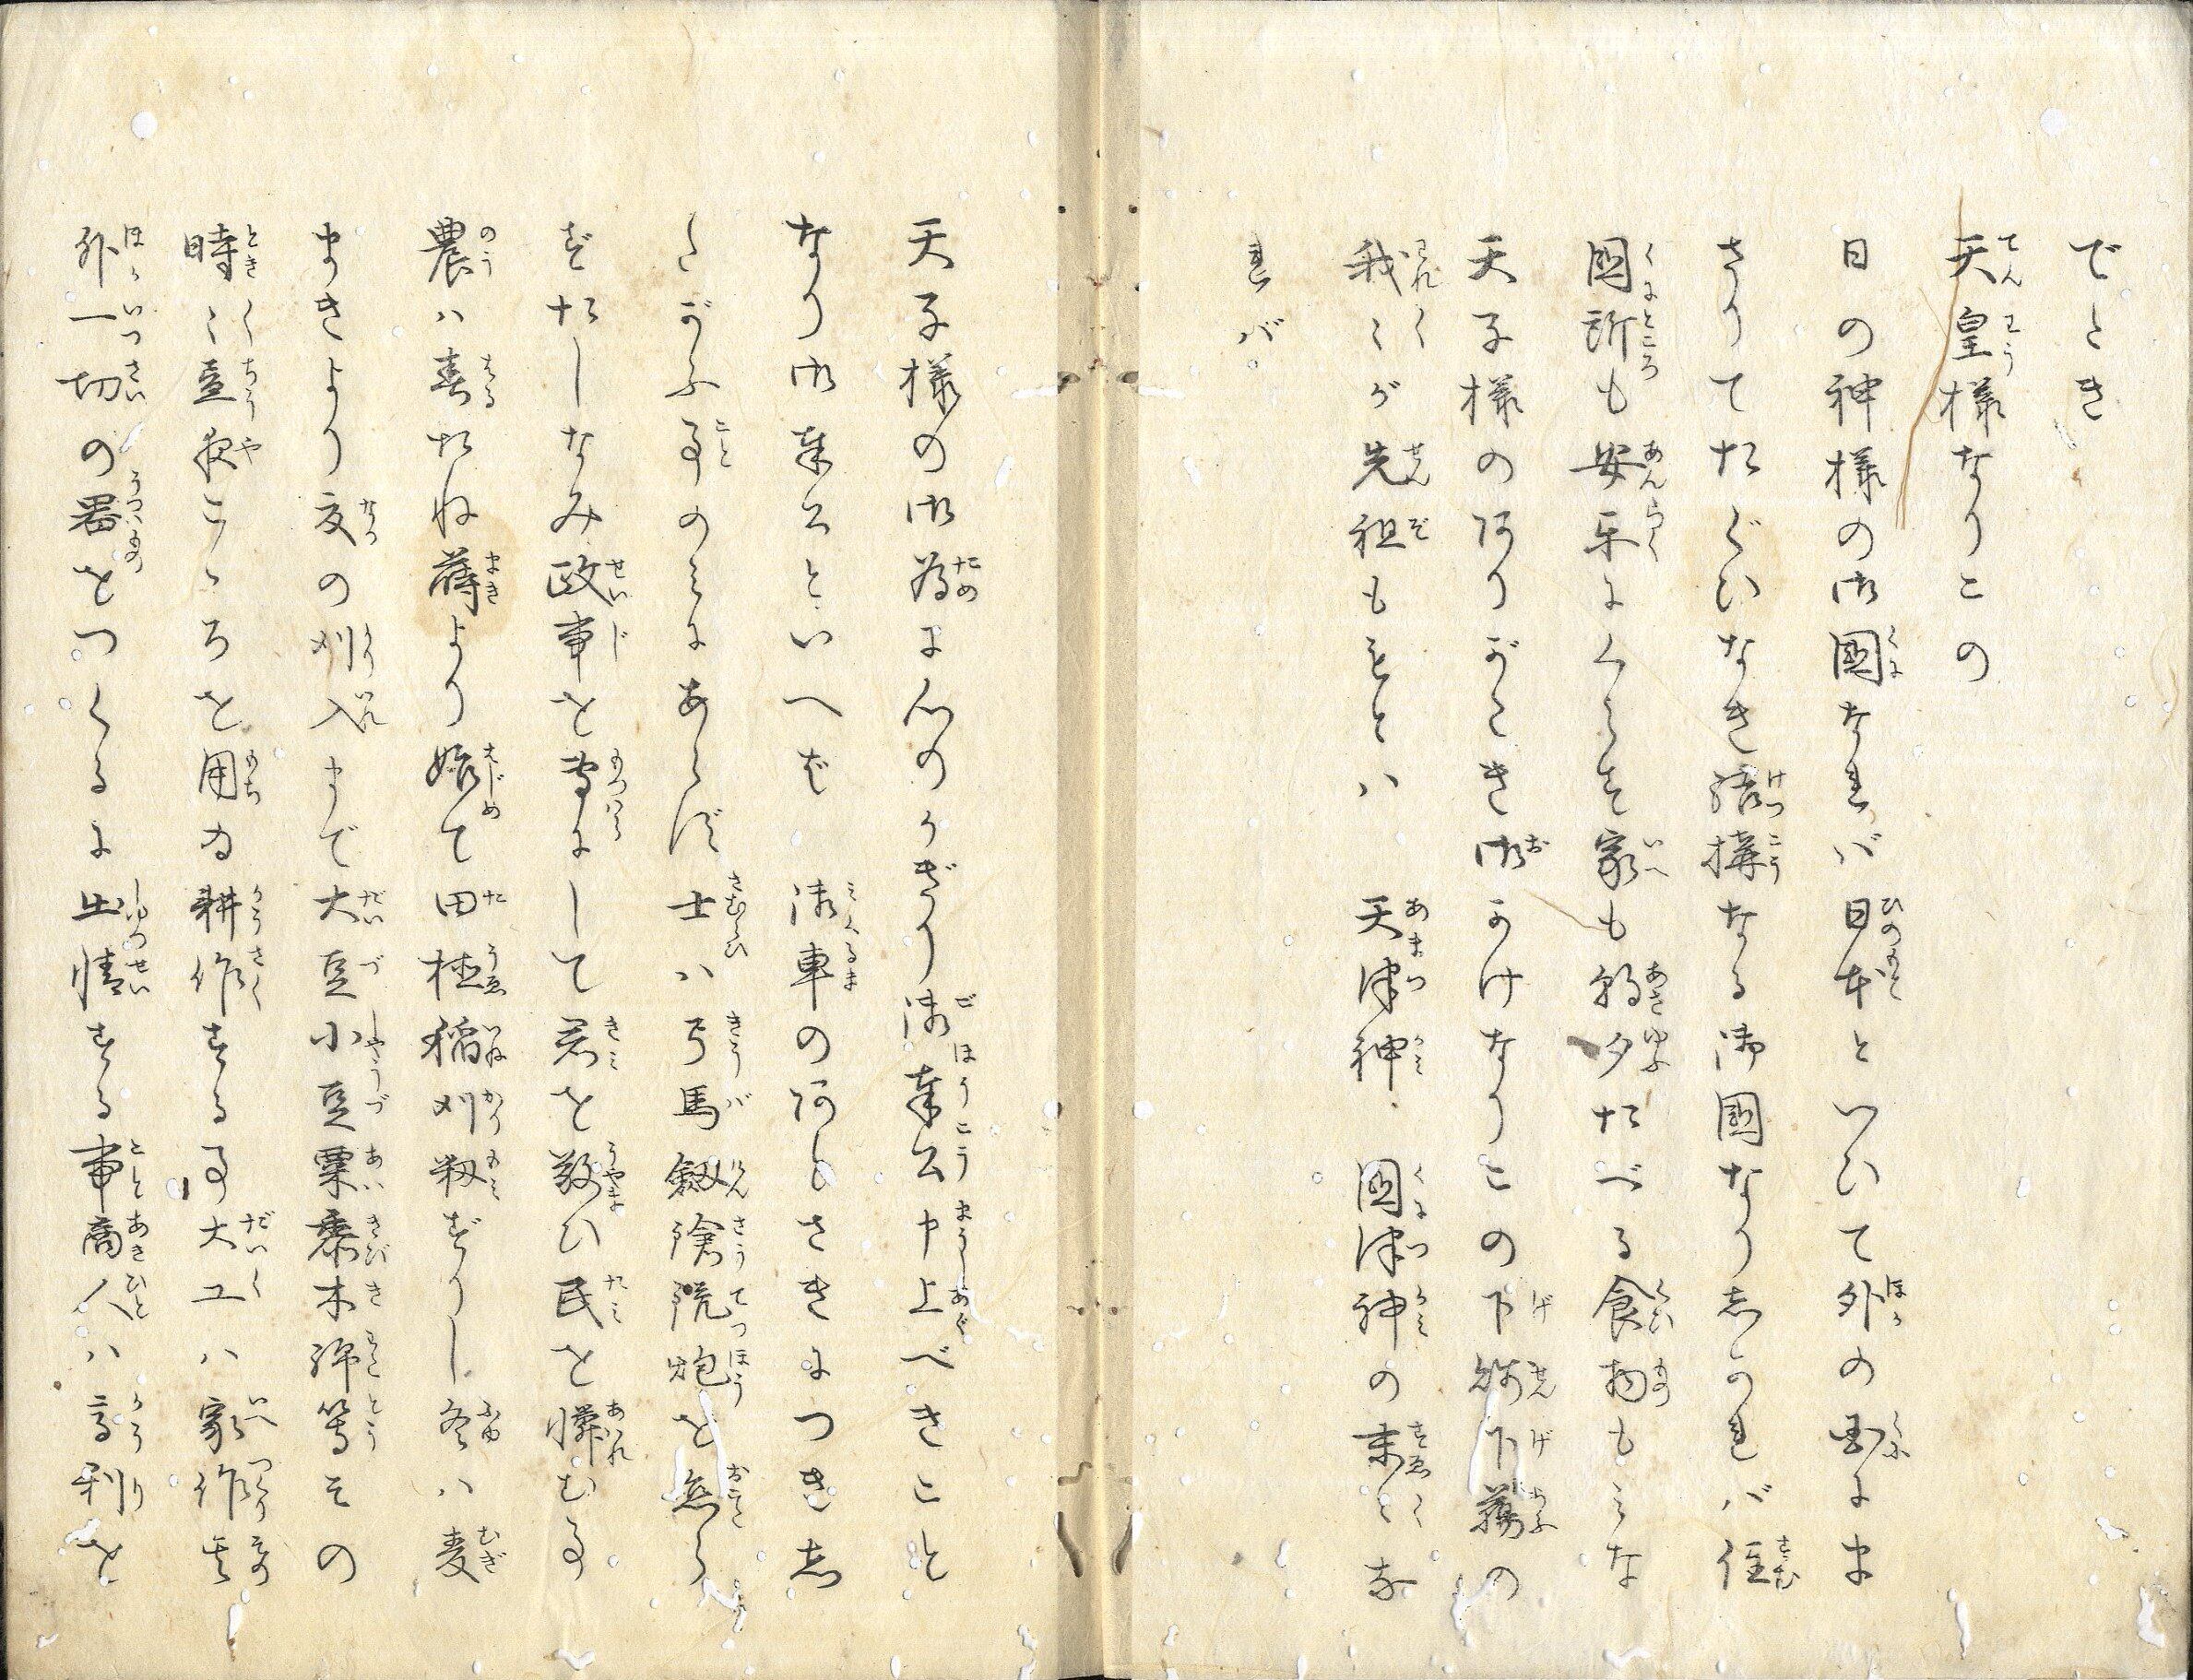 でとき
天皇様なりこの
日の神様の御國なれバ日本といひて外の国にま
さりてたぐひなき結構なる御國なりしかれバ住
國所も安楽にくらせ家も朝夕たべる食物もみな
天子様のありがたき御かけなりこの下賎下﨟の
我々が先祖ももとハ　天津神　國津神の末々な
れバ
天子様の御為に心のかぎり御奉公申上べきこと
なり御奉公といへど　御車のあとさきにつきし
たがふ事のみにあらず士ハ弓馬劔鎗銃炮を無ら
ずたしなみ政事を専にして君を敬ひ民を憐むる事
農ハ春たね蒔より始て田植稲刈籾ずりし冬ハ麦
まきより夏の刈入まで大豆小豆粟黍木綿等その
時々昼夜こゝろを用ゐ耕作する事大工ハ家作其
外一切の器をつくるに出情する事商人ハ高利を